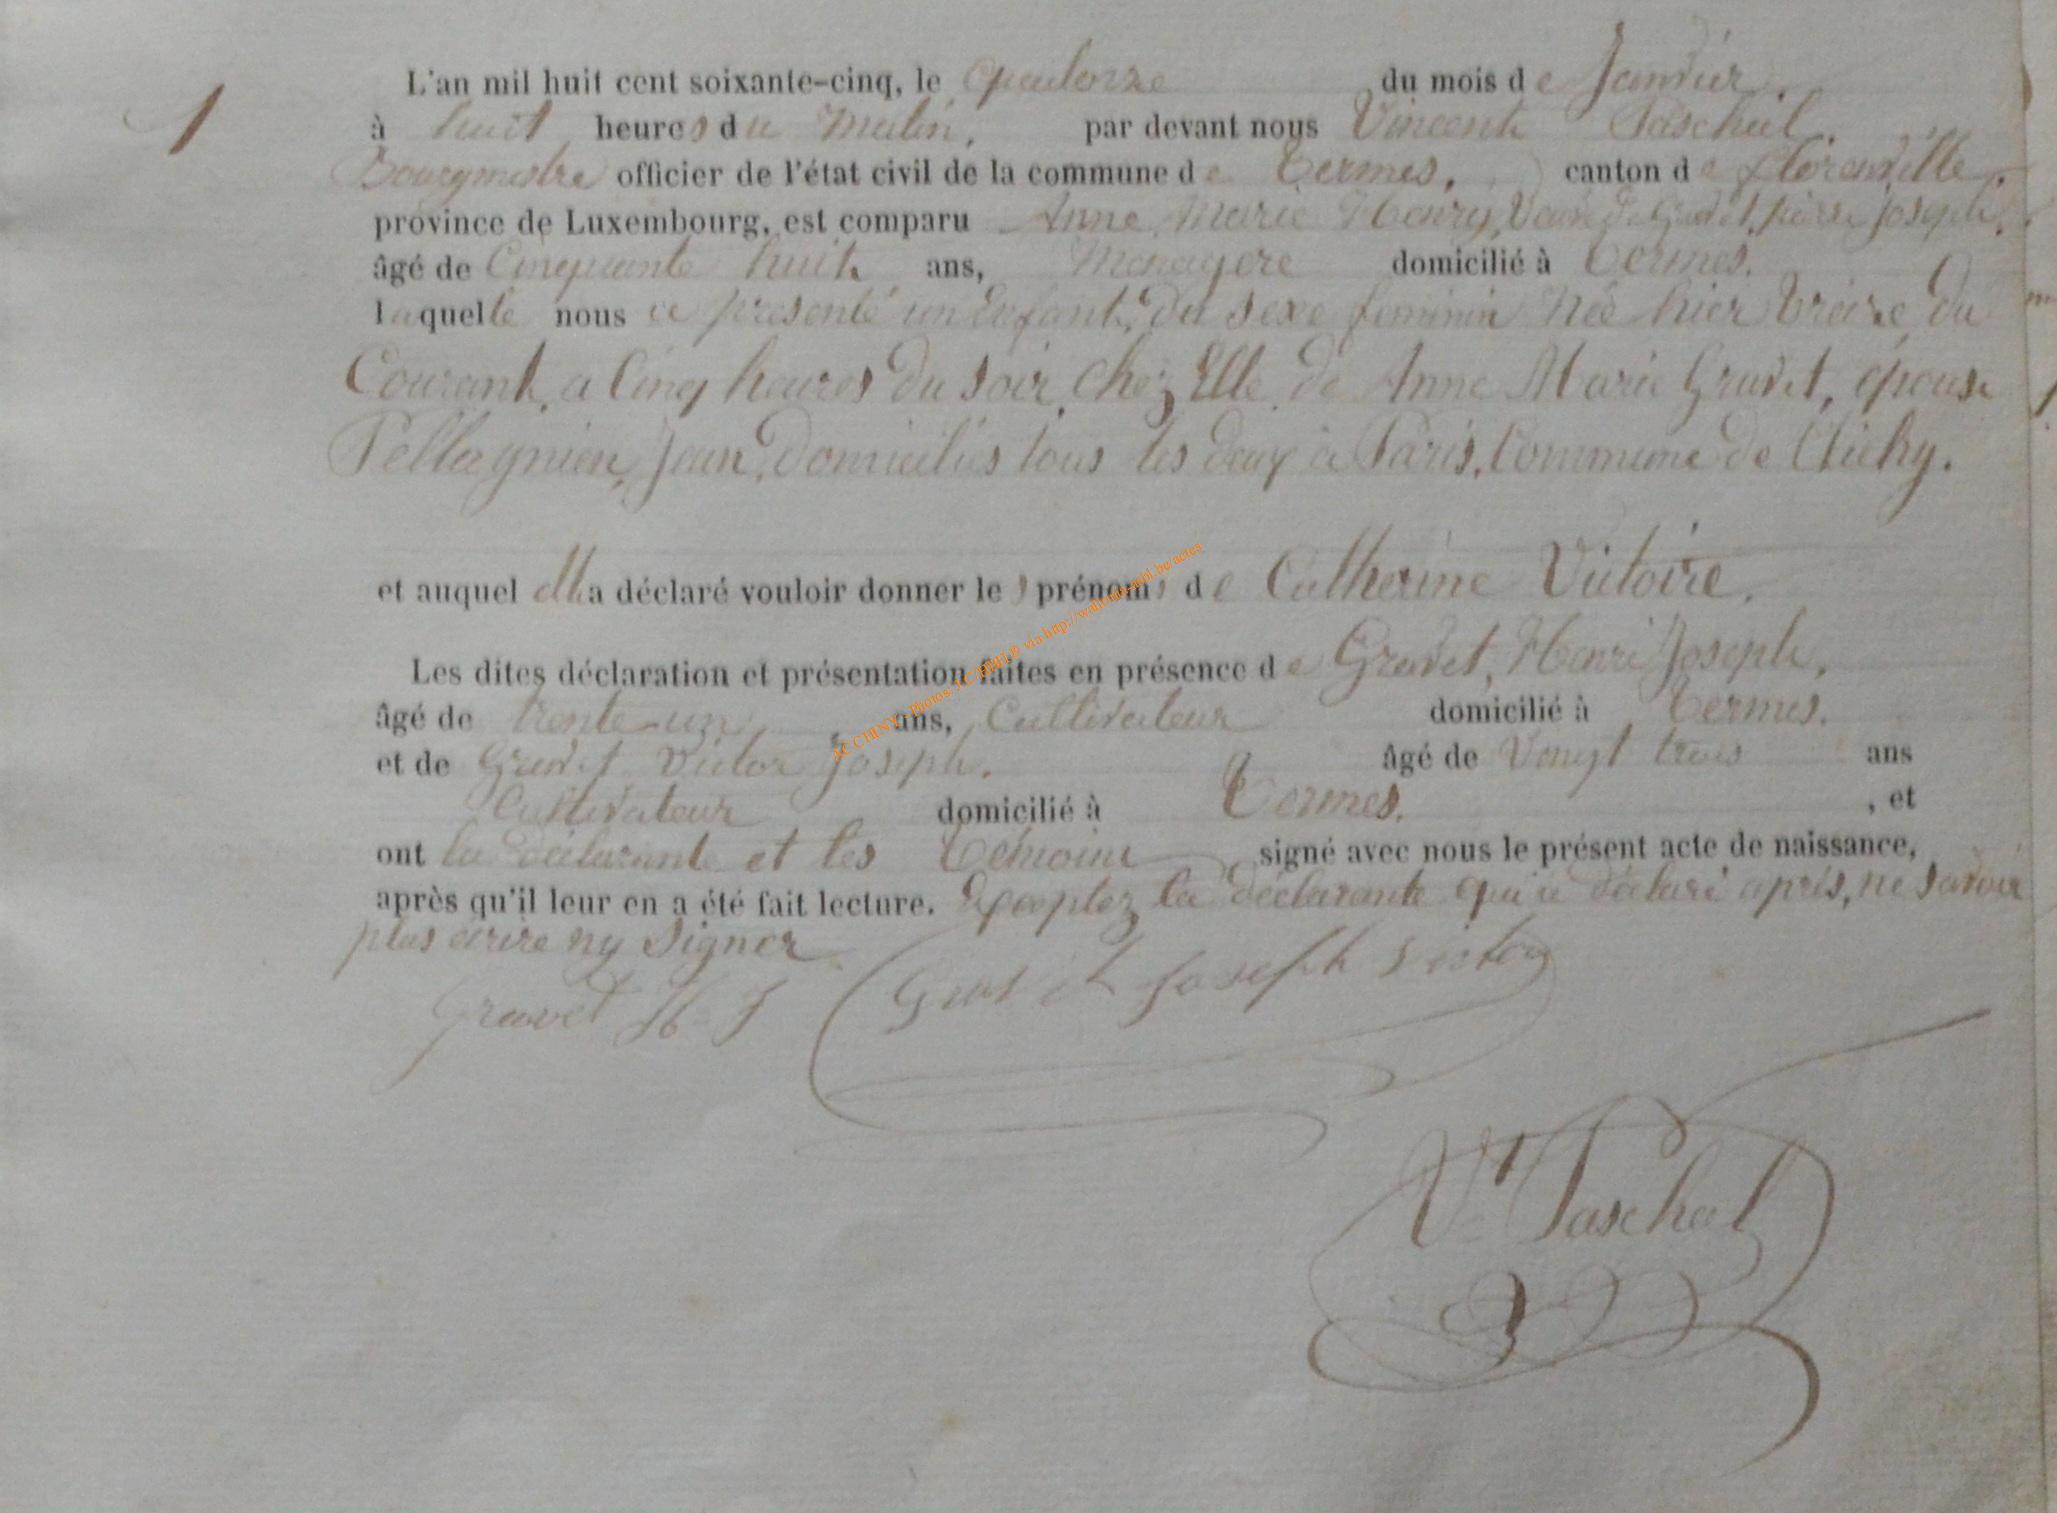 1
L'an mil huit cent soixante-cinq, le quatorze du mois de Janvier.
à huit heures du Matin, par devant nous Vincent Paschal.
Bourgmestre officier de l'état civil de la commune de Termes, canton de florenville.
province de Luxembourg, est comparu Anne Marie Henry, Veuve de Gravet, pierre joseph.
âgé de Cinquante huit ans, Menagere domicilié à Termes.
laquelle nous a presenté un Enfant, du sexe feminin née hier treize du
Courant, a Cinq heures du soir, chez Elle, de Anne Marie Gravet, épouse
Pellagnien, jean, domiciliés tous les deux à Paris, Commune de Clichy.
et auquel elle a déclaré vouloir donner les prénoms de Catherine Victoire.
Les dites déclaration et présentation faites en présence de Gravet, Henri Joseph,
âgé de trente-un ans, Cultivateur domicilié à Termes.
et de Gravet Victor Joseph. âgé de Vengt trois ans
Cultivateur domicilié à Termes. , et
ont la déclarante et les temoins signé avec nous le présent acte de naissance,
après qu'il leur en a été fait lecture. Exceptez la déclarante qui a déclaré après, ne savoir
plus écrire ny signer
Gravet H-J Gravet Joseph Victor
Vt Paschal